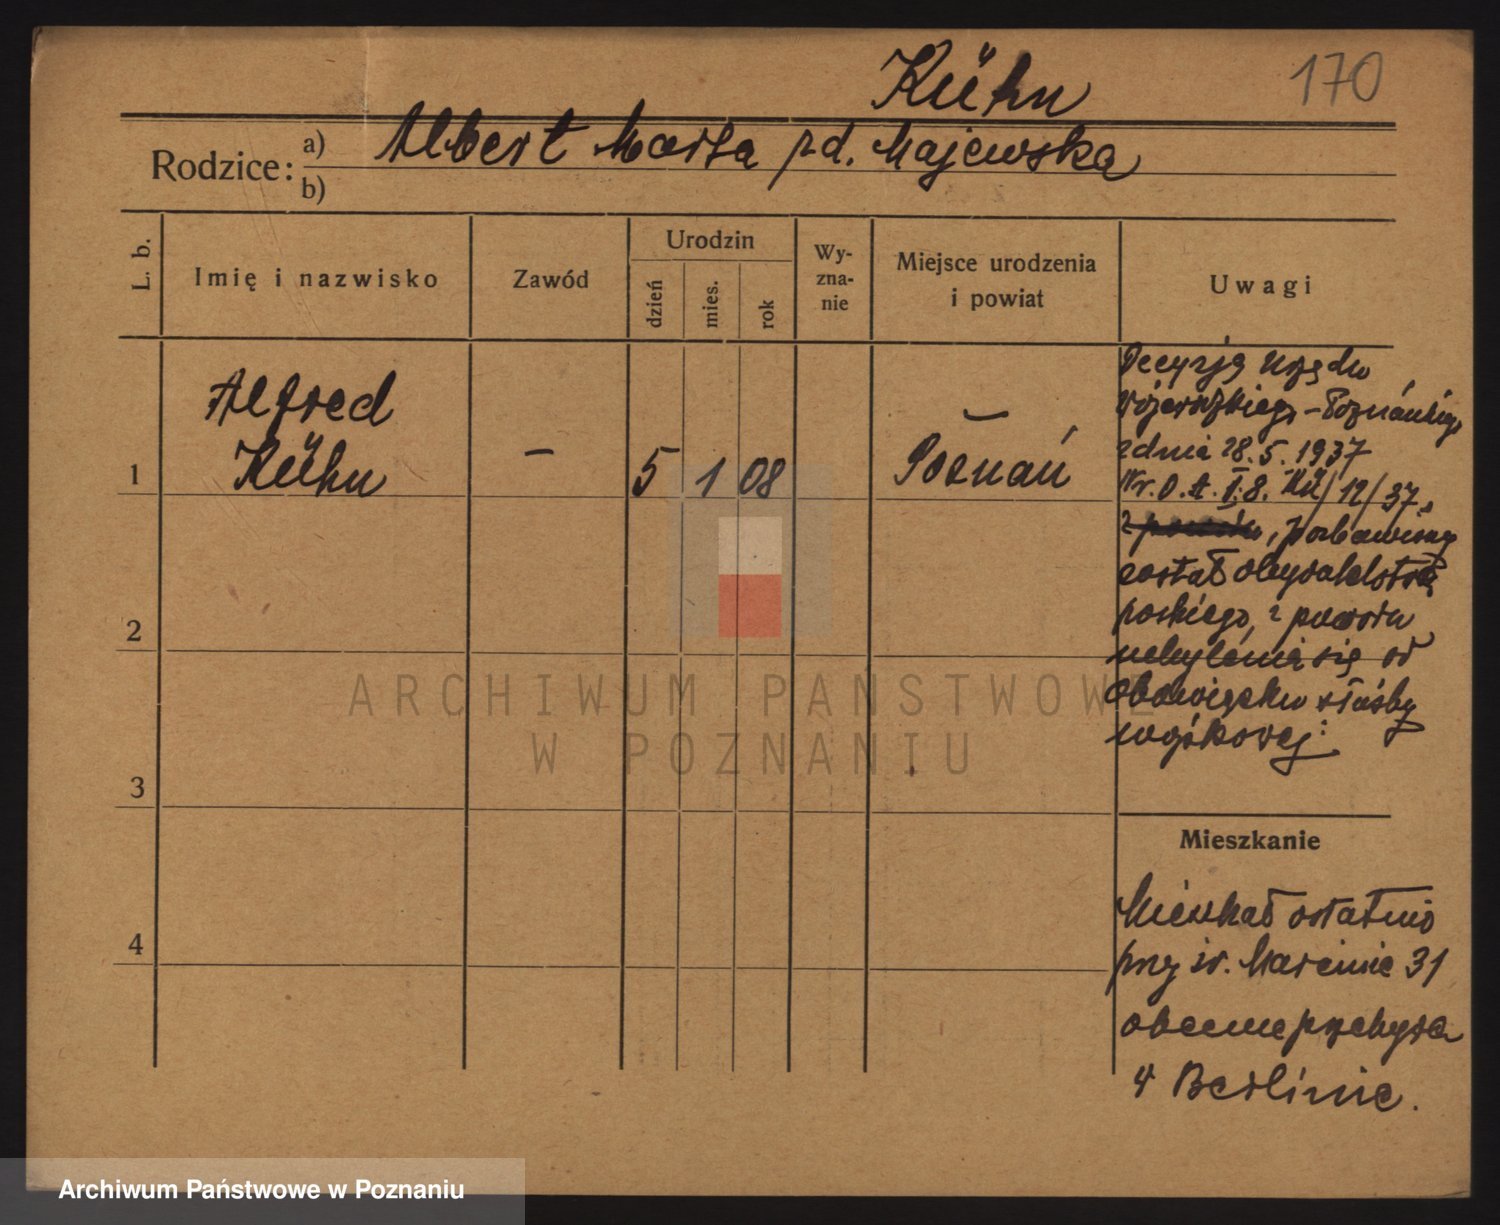 Kühn
170
Rodzice: a) Albert Marta zd. Majewska
b)
L. b.
Imię i nazwisko
Zawód
Urodzin
dzień
mies.
rok
Wy-
zna-
nie
Miejsce urodzenia
i powiat
Uwagi
Alfred
Kühn
1
–
5
1
08
–
Poznań
Decyzją Urzędu
Wojewódzkiego – Poznańskiego
z dnia 28.5.1937
Nr. O. A. I.8. Kü/12/37.
pozbawiony
został obywatelstwa
polskiego, z powodu
uchylenia się od
obowiązku służby
wojskowej.
2
3
4
Mieszkanie
Mieszkał ostatnio
przy św. Marcinie 31
obecnie przebywa
w Berlinie.
ARCHIWUM PAŃSTWOWE
W POZNANIU
Archiwum Państwowe w Poznaniu